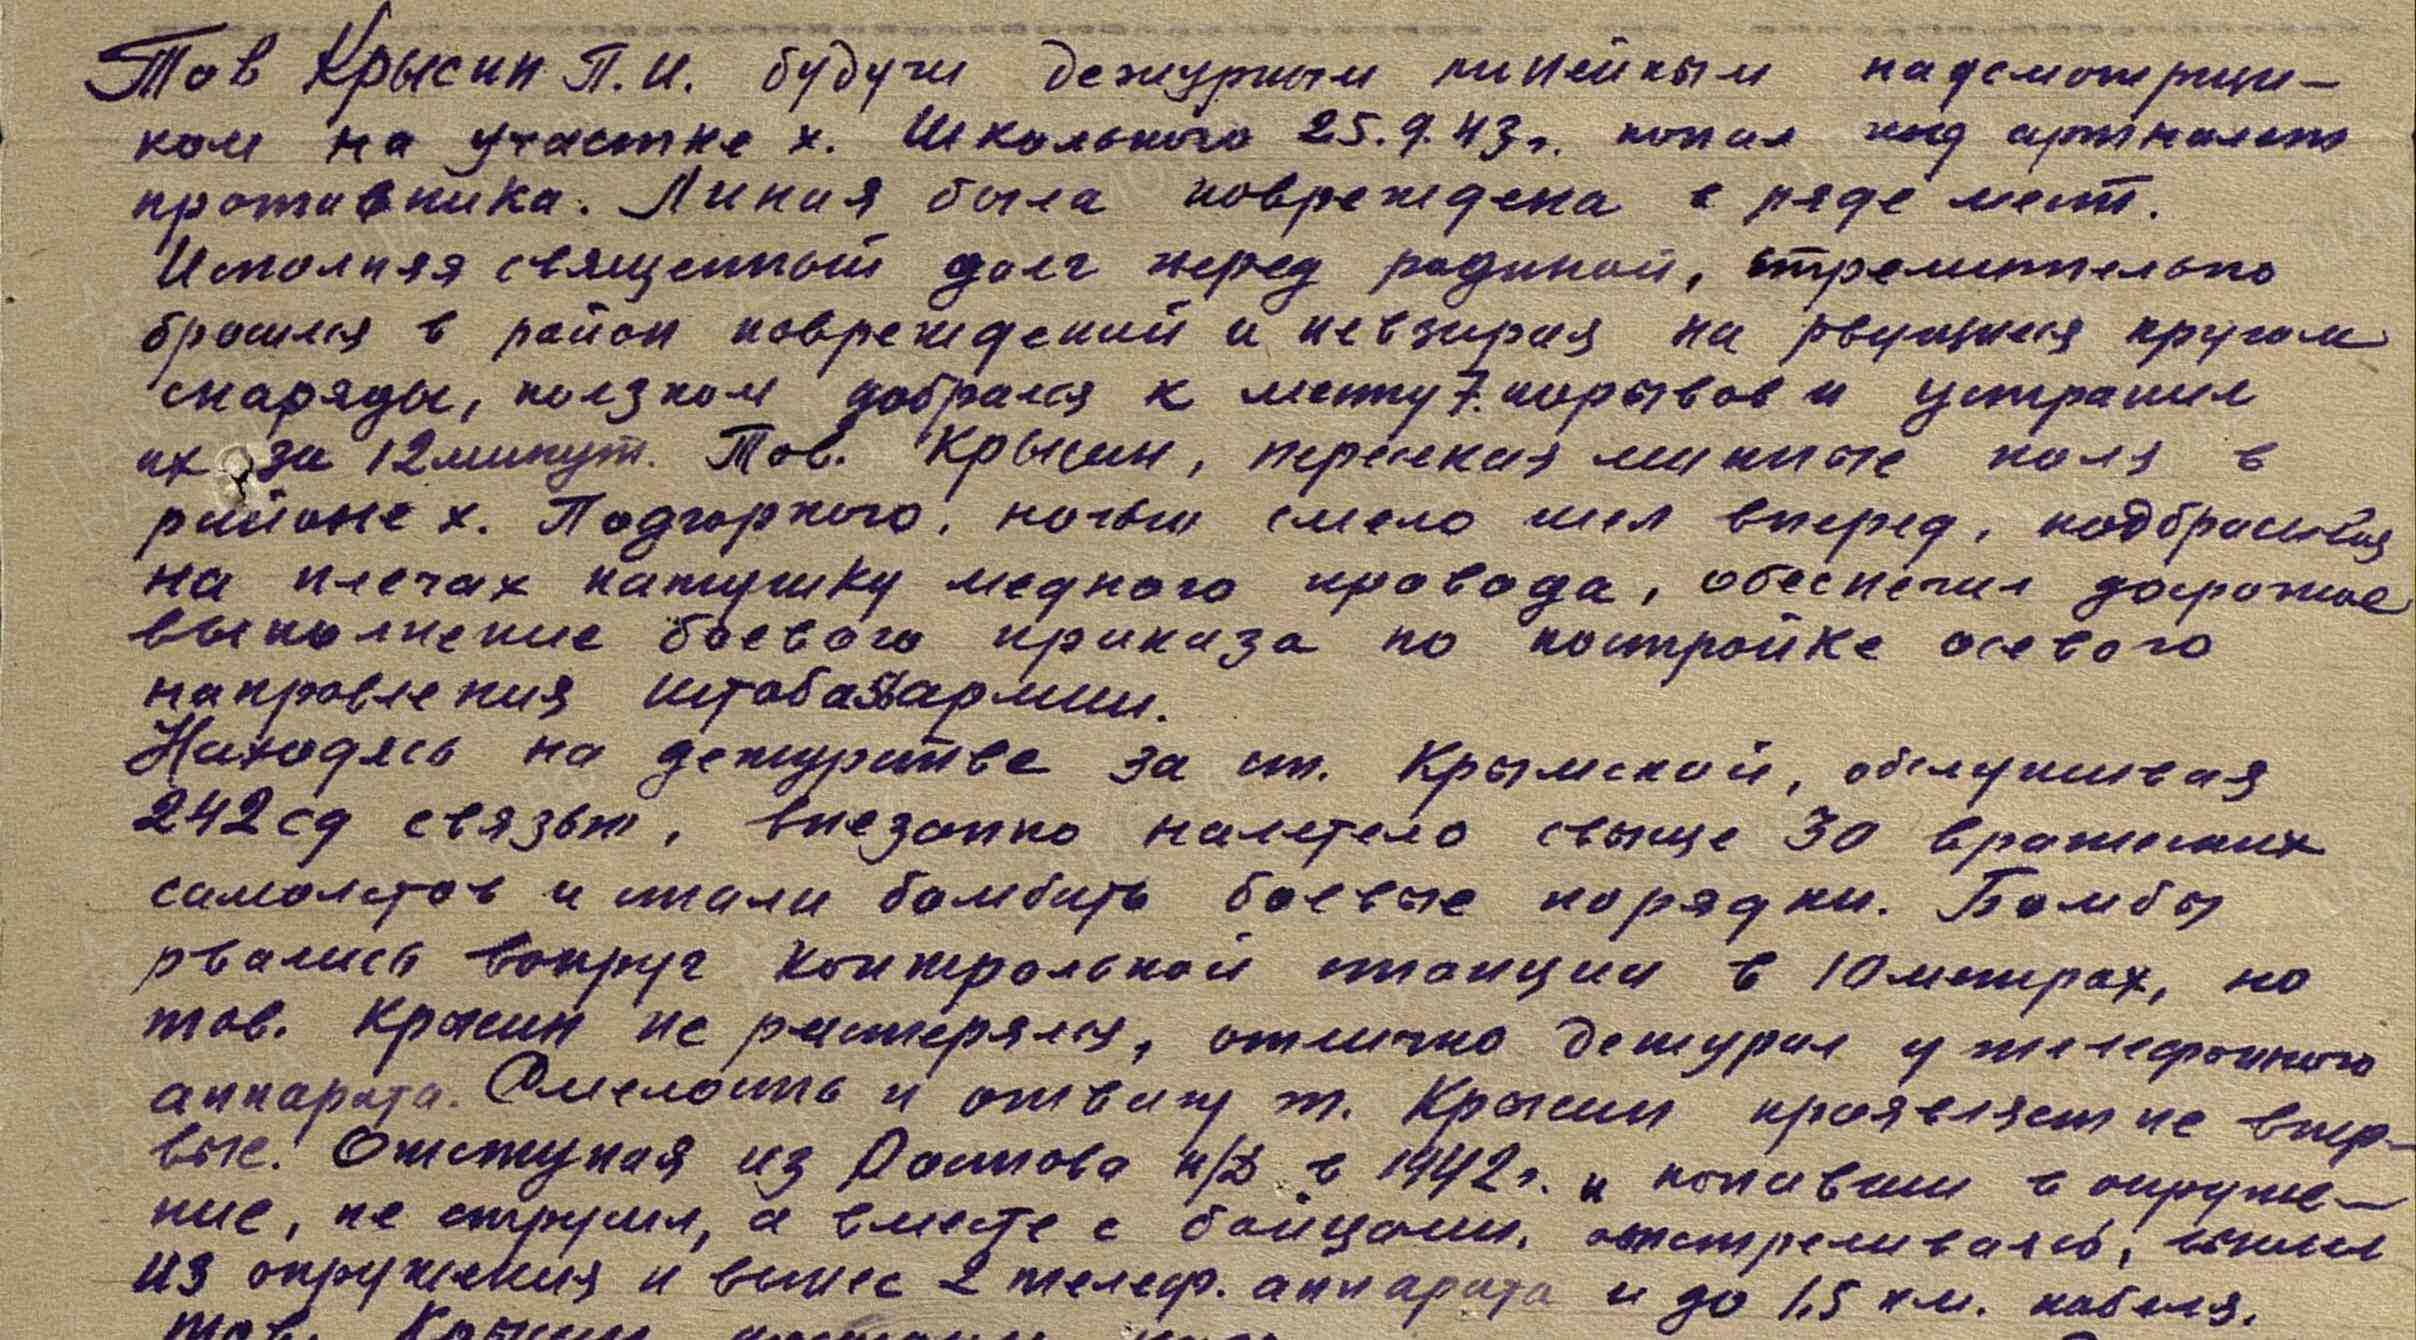 Тов Крысин П.И. будучи дежурным линейным надсмотрщи-
ком на участке х. Школьного 25.9.43г. попал под артналет
противника. Линия была повреждена в ряде мест.
Исполняя священный долг перед родиной, стремительно
бросился в район повреждений и невзирая на рвущиеся кругом
снаряды, ползком добрался к месту 7. порывов и устранил
их за 12 минут. Тов. Крысин, пересекая минные поля в
районе х. Подгорного, ночью смело шел вперед, подбрасывая
на плечах катушку медного провода, обеспечил досрочное
выполнение боевого приказа по постройке осевого
направления штоба армии.
Находясь на дежурстве за ст. Крымской, обслуживая
242 сд связью, внезапно налетело свыше 30 вражеских
самолетов и стали бомбить боевые порядки. Бомбы
рвались вокруг контрольной станции в 10 метрах, но
тов. Крысин не растерялся, отлично дежурил у телефонного
аппарата. Смелость и отвагу т. Крысин проявляет не впер-
вые. Отступая из Ростова н/Д в 1942г. и попавши в окруже-
ние, не струсил, а вместе с бойцами, отстреливаясь, вышел
из окружения и вынес 2 телеф. аппарата и до 1,5 км. кабеля.
тов. Крысин